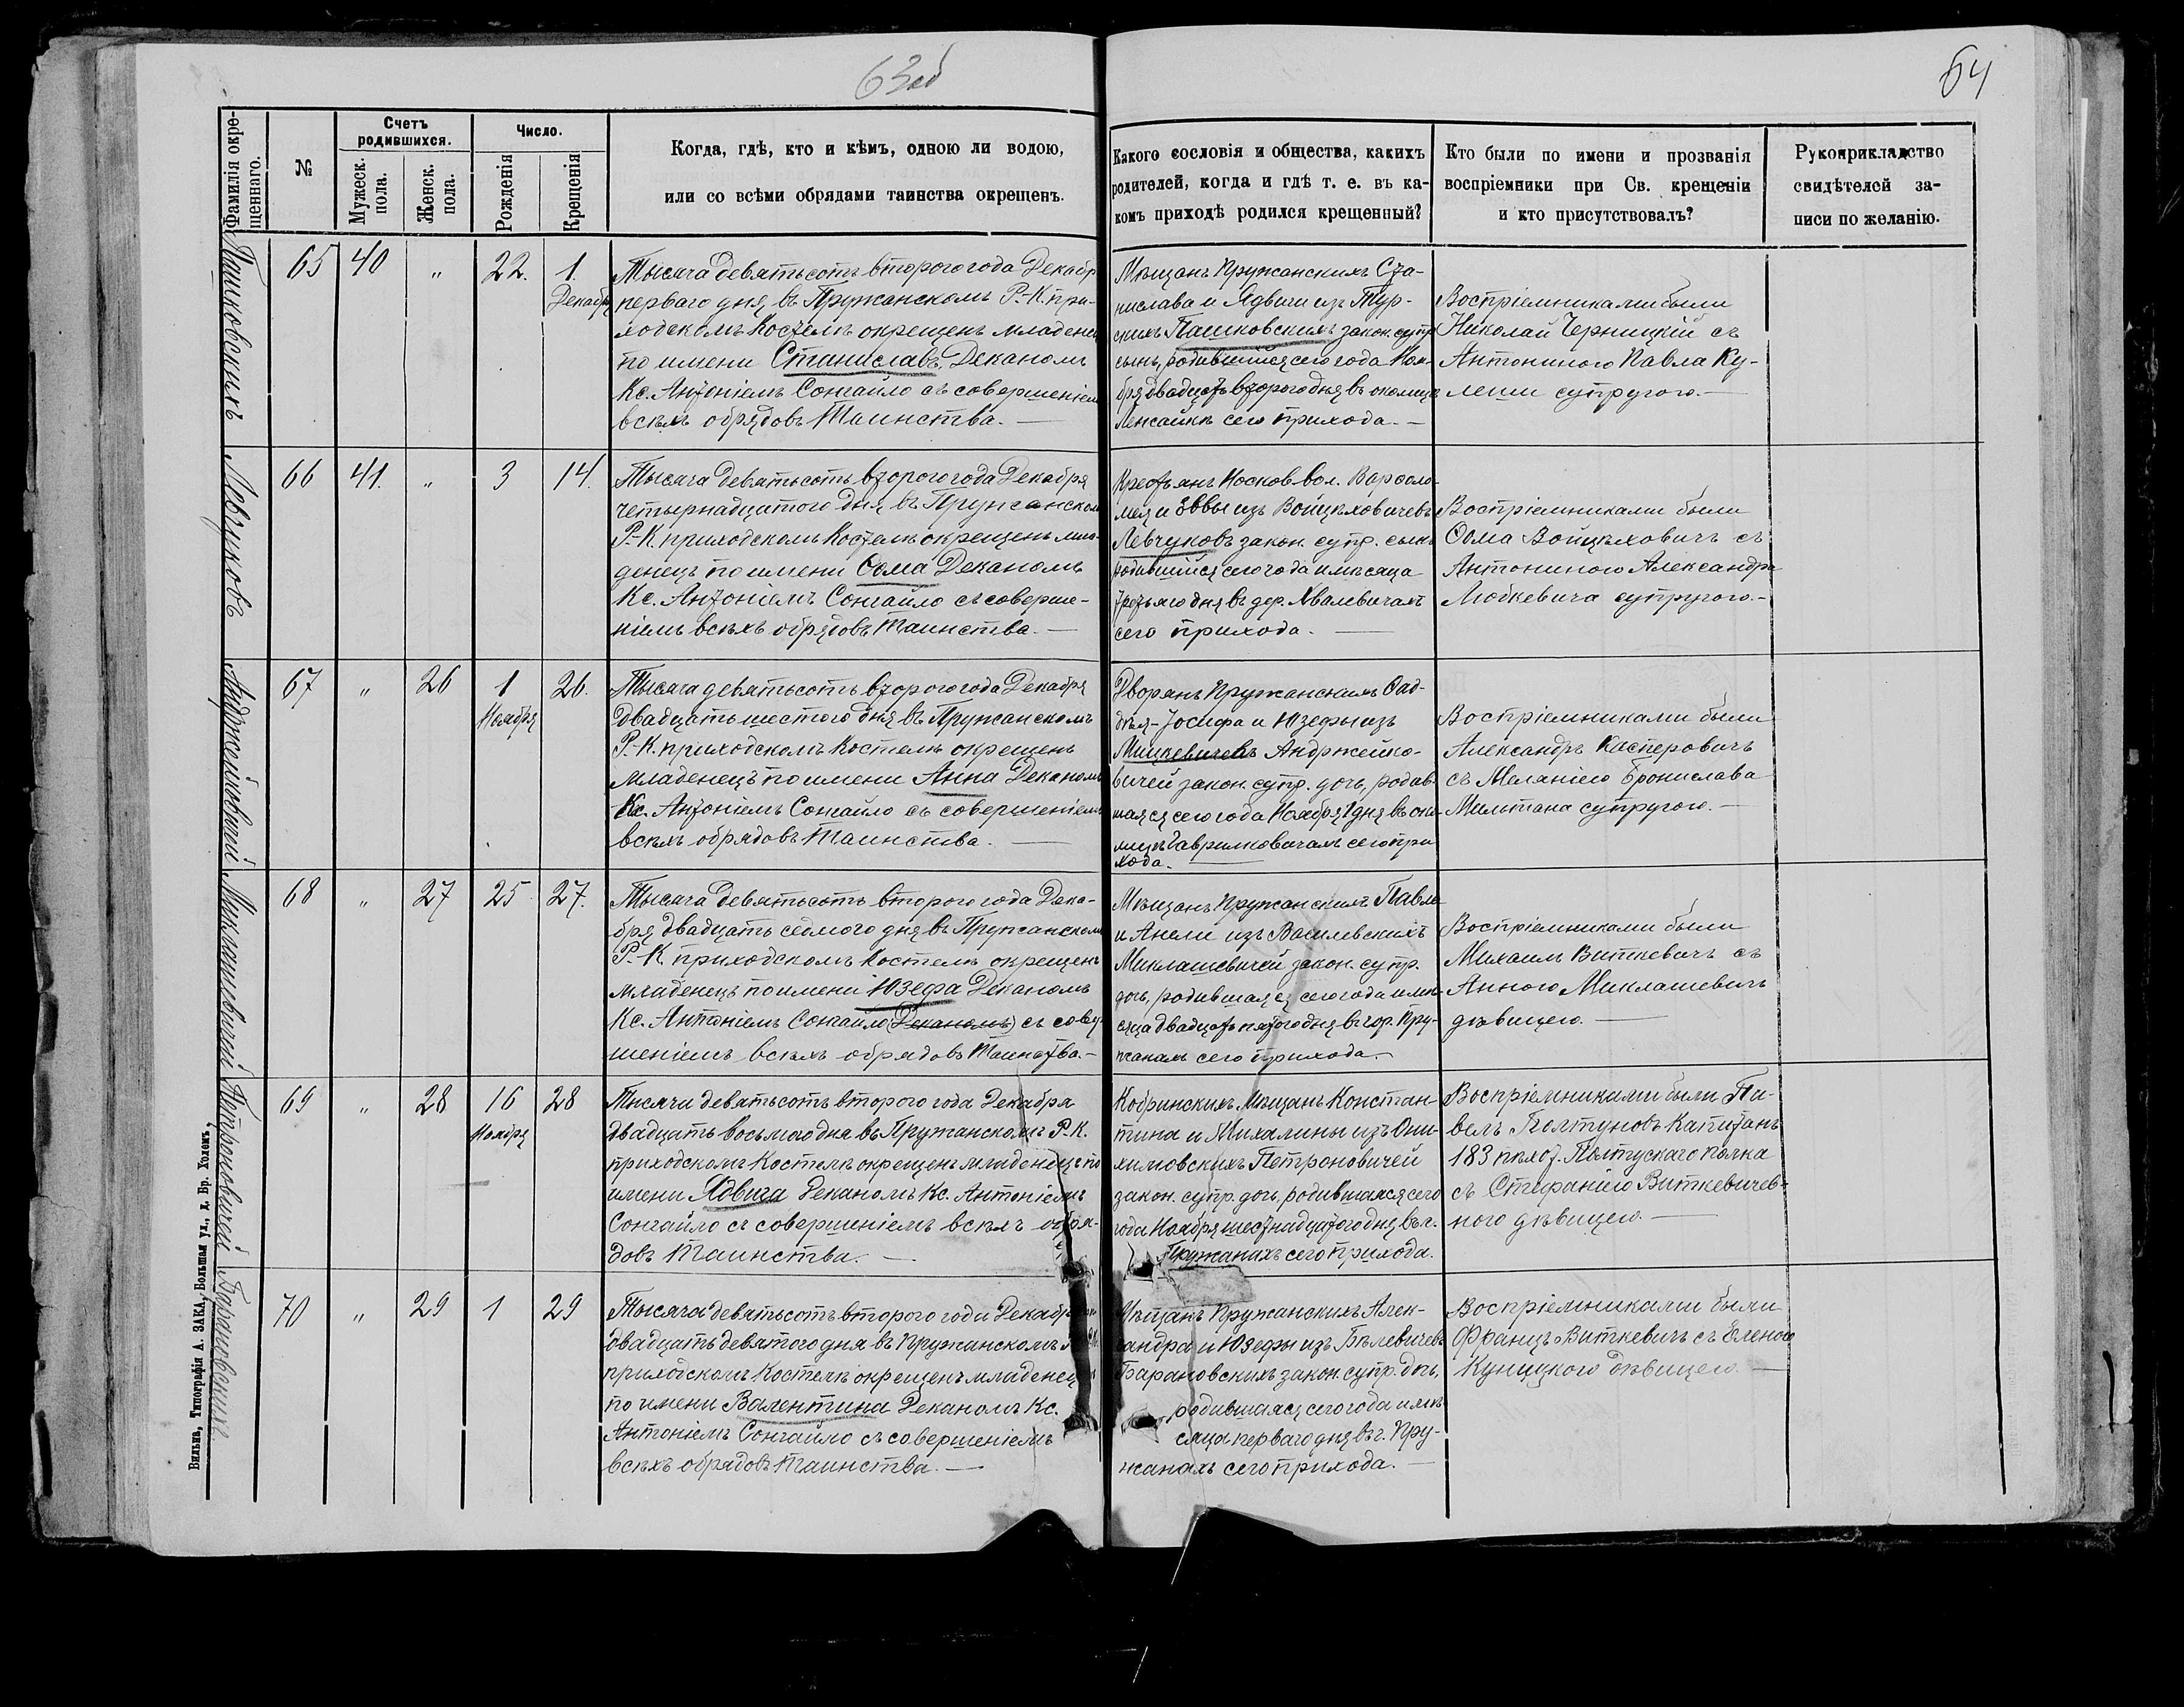 63об
64
Фамилія окре-
щеннаго.
№
Счетъ
родившихся.
Мужеск.
пола.
Женск.
пола.
Число.
Рожденія
Крещенія
Когда, гдѣ, кто и кѣмъ, одною ли водою,
или со всѣми обрядами таинства окрещенъ.
Какого сословія и общества, какихъ
родителей, когда и гдѣ т. е. въ ка-
комъ приходѣ родился крещенный?
Кто были по имени и прозванія
воспріемники при Св. крещеніи
и кто присутствовалъ?
Рукоприкладство
свидѣтелей за-
писи по желанію.
Пашковскихъ
65 40 „ 22. 1.
Декабр
Тысяча девятьсотъ второго года Декабр
перваго дня, въ Пружанскомъ Р.-К. при-
ходскомъ Костелѣ окрещенъ младенец
по имени Станиславъ, Деканомъ
Кс. Антоніемъ Сонгайло съ совершеніем
всѣхъ обрядовъ Таинства. —
Мѣщанъ Пружанскихъ Ста-
нислава и Ядвиги изъ Тур-
скихъ Пашковскихъ закон. супр.
сынъ, родившійся сего года Ноя-
бря двадцать второго дня въ околицѣ
сего прихода. —
Воспріемниками были
Николай Черницкій съ
Антониною Павла Ку-
леши супругою. —
Левчуковъ
66 41. „ 3 14.
Тысяча девятьсотъ второго года Декабря
четырнадцатого дня въ Пружанском
Р.-К. приходскомъ Костелѣ окрещенъ мла-
денецъ по имени Ѳома Деканомъ
Кс. Антоніемъ Сонгайло съ соверше-
ніемъ всѣхъ обрядовъ Таинства. —
Крестьянъ Носков. вол. Варѳоло-
мея и Эввы изъ Войцѣховичевъ
Левчуковъ закон. супр. сынъ
родившійся сего года и мѣсяца
третьяго дня въ дер. Хвалевичахъ
сего прихода. —
Воспріемниками были
Ѳома Войцѣховичъ съ
Антониною Александра
Людкевича супругою. —
Андржейковичей
67 „ 26 1 26.
Ноября
Тысяча девятьсотъ второго года Декабря
двадцать шестого дня въ Пружанскомъ
Р.-К. приходскомъ Костелѣ окрещенъ
младенецъ по имени Анна Деканомъ
Кс. Антоніемъ Сонгайло съ совершеніемъ
всѣхъ обрядовъ Таинства. —
Дворянъ Пружанскихъ Ѳад-
дѣя-Іосифа и Юзефы изъ
Мицкевичевъ Андржейко-
вичей закон. супр. дочь, родив-
шаяся сего года Ноября 1 дня въ око-
лицѣ Гавриловичахъ сего при
хода. —
Воспріемниками были
Александръ Касперовичъ
съ Меланіею Бронислава
Мильтана супругою. —
Миклашевичей
68 „ 27 25 27.
Тысяча девятьсотъ второго года Дека-
бря двадцать седмого дня въ Пружанском
Р.-К. приходскомъ Костелѣ окрещенъ
младенецъ по имени Юзефа Деканомъ
Кс. Антоніемъ Сонгайло (Деканомъ) съ совер
шеніемъ всѣхъ обрядовъ Таинства. —
Мѣщанъ Пружанскихъ Павла
и Анели изъ Василевскихъ
Миклашевичей закон. супр.
дочь, родившаяся сего года и мѣ-
сяца двадцать пятого дня въ гор. Пру-
жанахъ сего прихода. —
Воспріемниками были
Михаилъ Виткевичъ съ
Анною Миклашевичъ
дѣвицею. —
Петроновичей
69 „ 28 16 28
Ноября
Тысячи девятьсотъ второго года Декабря
двадцать восьмого дня въ Пружанскомъ Р.-К.
приходскомъ Костелѣ окрещенъ младенецъ по
имени Ядвига Деканомъ Кс. Антоніемъ
Сонгайло съ совершеніемъ всѣхъ обря-
довъ Таинства. —
Кобринскихъ Мѣщанъ Констан-
тина и Михалины изъ Они-
химовскихъ Петроновичей
закон. супр. дочь, родившаяся сего
года Ноября шестнадцатого дня въ г.
Пружанахъ сего прихода.
Воспріемниками были Па-
велъ Полтуновъ Капитанъ
183 пѣхот. Пултускаго полка
съ Стефаніею Виткевичев-
ною дѣвицею. —
Барановскихъ
70 „ 29 1 29
Тысяча девятьсотъ второго года Декабр
двадцать девятого дня въ Пружанскомъ
приходскомъ Костелѣ окрещенъ младенец
по имени Валентина Деканомъ Кс.
Антоніемъ Сонгайло съ совершеніемъ
всѣхъ обрядовъ Таинства. —
Мѣщанъ Пружанскихъ Алек-
сандра и Юзефы изъ Бѣлевичевъ
Барановскихъ закон. супр. дочь,
родившаяся сего года и мѣ
сяца перваго дня въ г. Пру-
жанахъ сего прихода. —
Воспріемниками были
Францъ Виткевичъ съ Еленою
Куницкою дѣвицею. —
Вильна, Типографія А. ЗАКА, Большая ул., д. Бр. Холемъ,